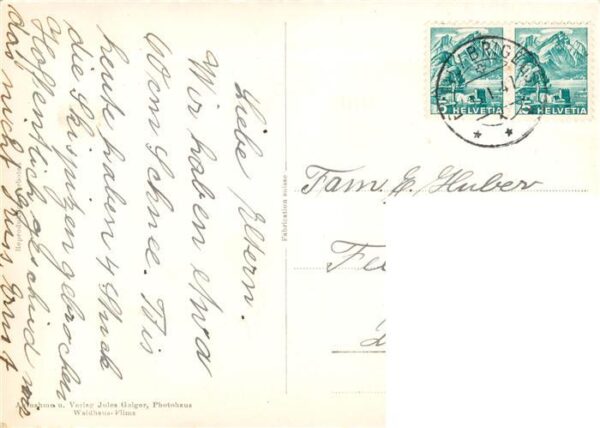 Liebe Eltern.
Wir haben etwa
40cm Schnee. Bis
heute haben 4 Stück
die Skispitzen gebrochen
Hoffentlich geschied mir
das nicht Gruss, Ernst
Fam. E. Huber
HELVETIA
HELVETIA
Fabrication suisse
Aufnahme u. Verlag Jules Geiger, Photohaus
Waldhaus-Flims